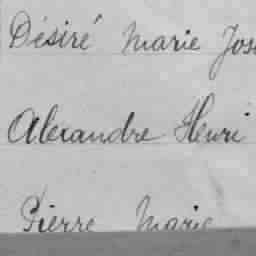 Désiré Marie Jos
Alexandre Henri
Pierre Marie